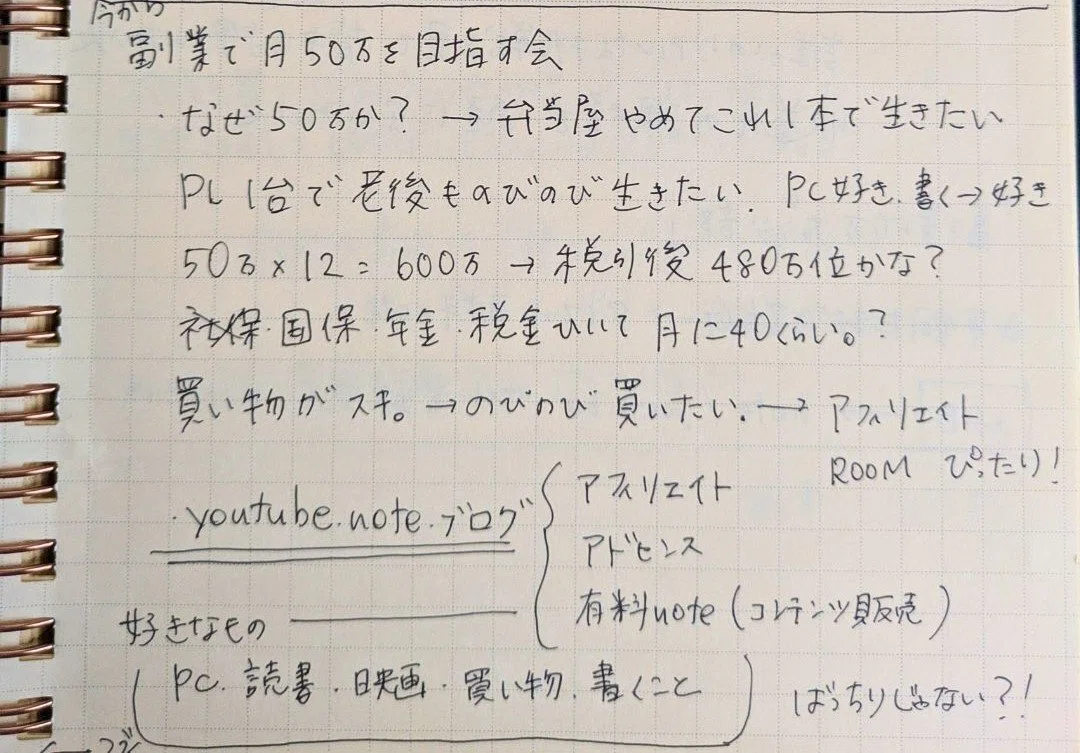 今から
副業で月50万を目指す会
・なぜ50万か? → 弁当屋やめてこれ1本で生きたい
PC 1台で老後ものびのび生きたい. PC好き. 書く→好き
50万×12=600万 → 税引後 480万位かな?
社保・国保・年金・税金ひいて 月に40くらい。?
買い物がスキ。→のびのび買いたい. → アフィリエイト
ROOM ぴったり!
・youtube.note.ブログ
アフィリエイト
アドセンス
有料note (コンテンツ販売)
好きなもの
PC. 読書・映画・買い物. 書くこと
ばっちりじゃない?!